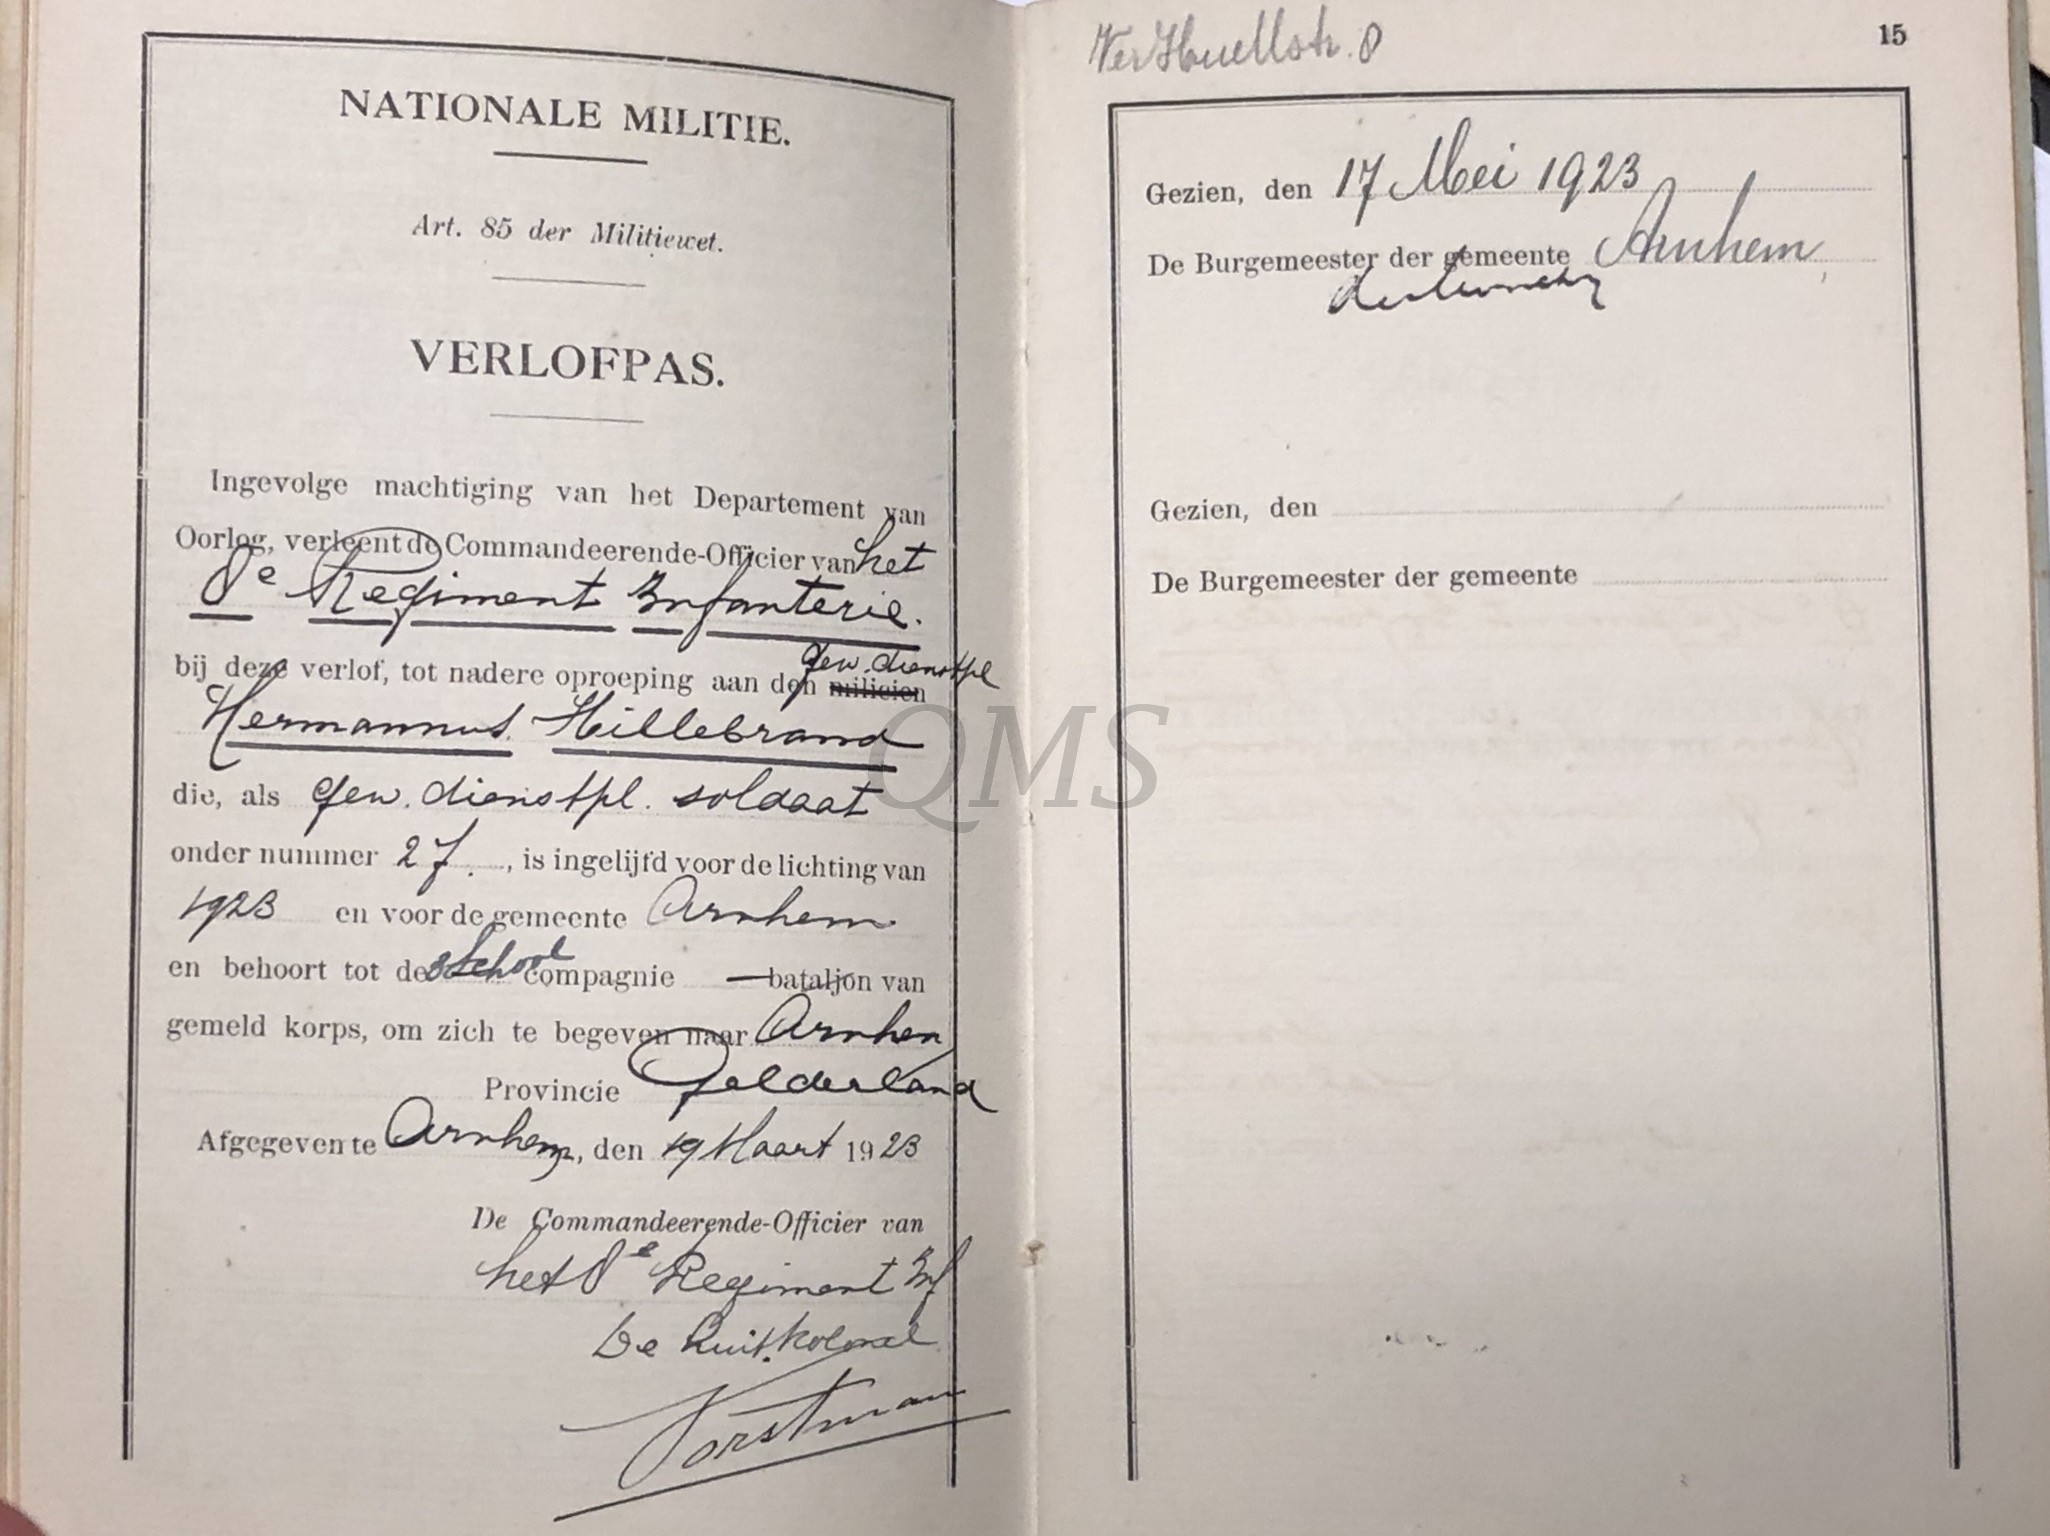 NATIONALE MILITIE.
Art. 85 der Militiewet.
VERLOFPAS.
Ingevolge machtiging van het Departement van
Oorlog, verleent de Commandeerende-Officier van het
8e Regiment Infanterie.
gew. dienstpl
bij deze verlof, tot nadere oproeping aan den milicien
Hermannus Hillebrand
die, als gew. dienstpl. soldaat
onder nummer 27, is ingelijfd voor de lichting van
1923 en voor de gemeente Arnhem
en behoort tot de 3 School compagnie — bataljon van
gemeld korps, om zich te begeven naar Arnhem
Provincie Gelderland
Afgegeven te Arnhem, den 19 Maart 1923
De Commandeerende-Officier van
het 8e Regiment Inf
De Luit. Kolonel
Vorstman
VerHuellstr. 8
15
Gezien, den 17 Mei 1923
De Burgemeester der gemeente Arnhem,
Gezien, den
De Burgemeester der gemeente
QMS